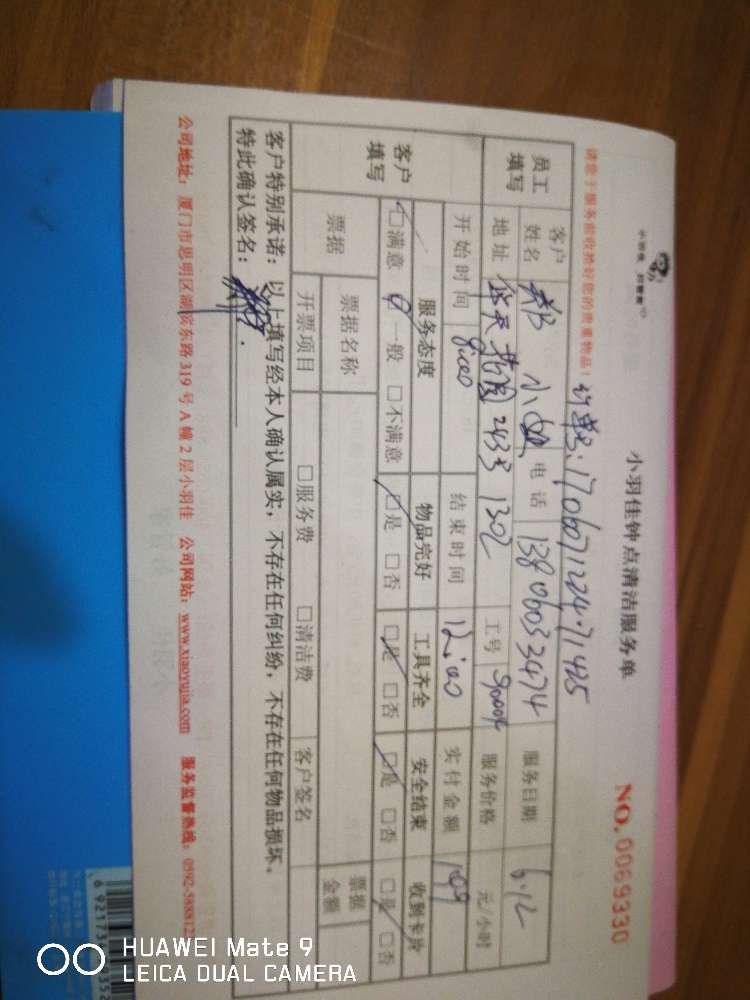 小羽佳 好管家
小羽佳钟点清洁服务单
NO. 0069330
请您于服务前收拾好您的贵重物品!
170607122471425
员工填写 客户姓名 郑小姐 电话 13806033474 服务日期 6.12
地址 243号 1302 工号 服务价格 元/小时
开始时间 结束时间 12:00 实付金额
客户填写 服务态度 物品完好 工具齐全 安全结束 收到卡片
□满意 □一般 □不满意 □是 □否 □是 □否 □是 □否 □是 □否
票据 票据名称 票据金额
开票项目 □服务费 □清洁费 客户签名
客户特别承诺:以上填写经本人确认属实,不存在任何纠纷,不存在任何物品损坏。
特此确认签名:
公司地址:厦门市思明区湖滨东路 319 号 A 幢 2 层小羽佳 公司网站:www.xiaoyujia.com 服务监督热线:0592-588812
HUAWEI Mate 9
LEICA DUAL CAMERA